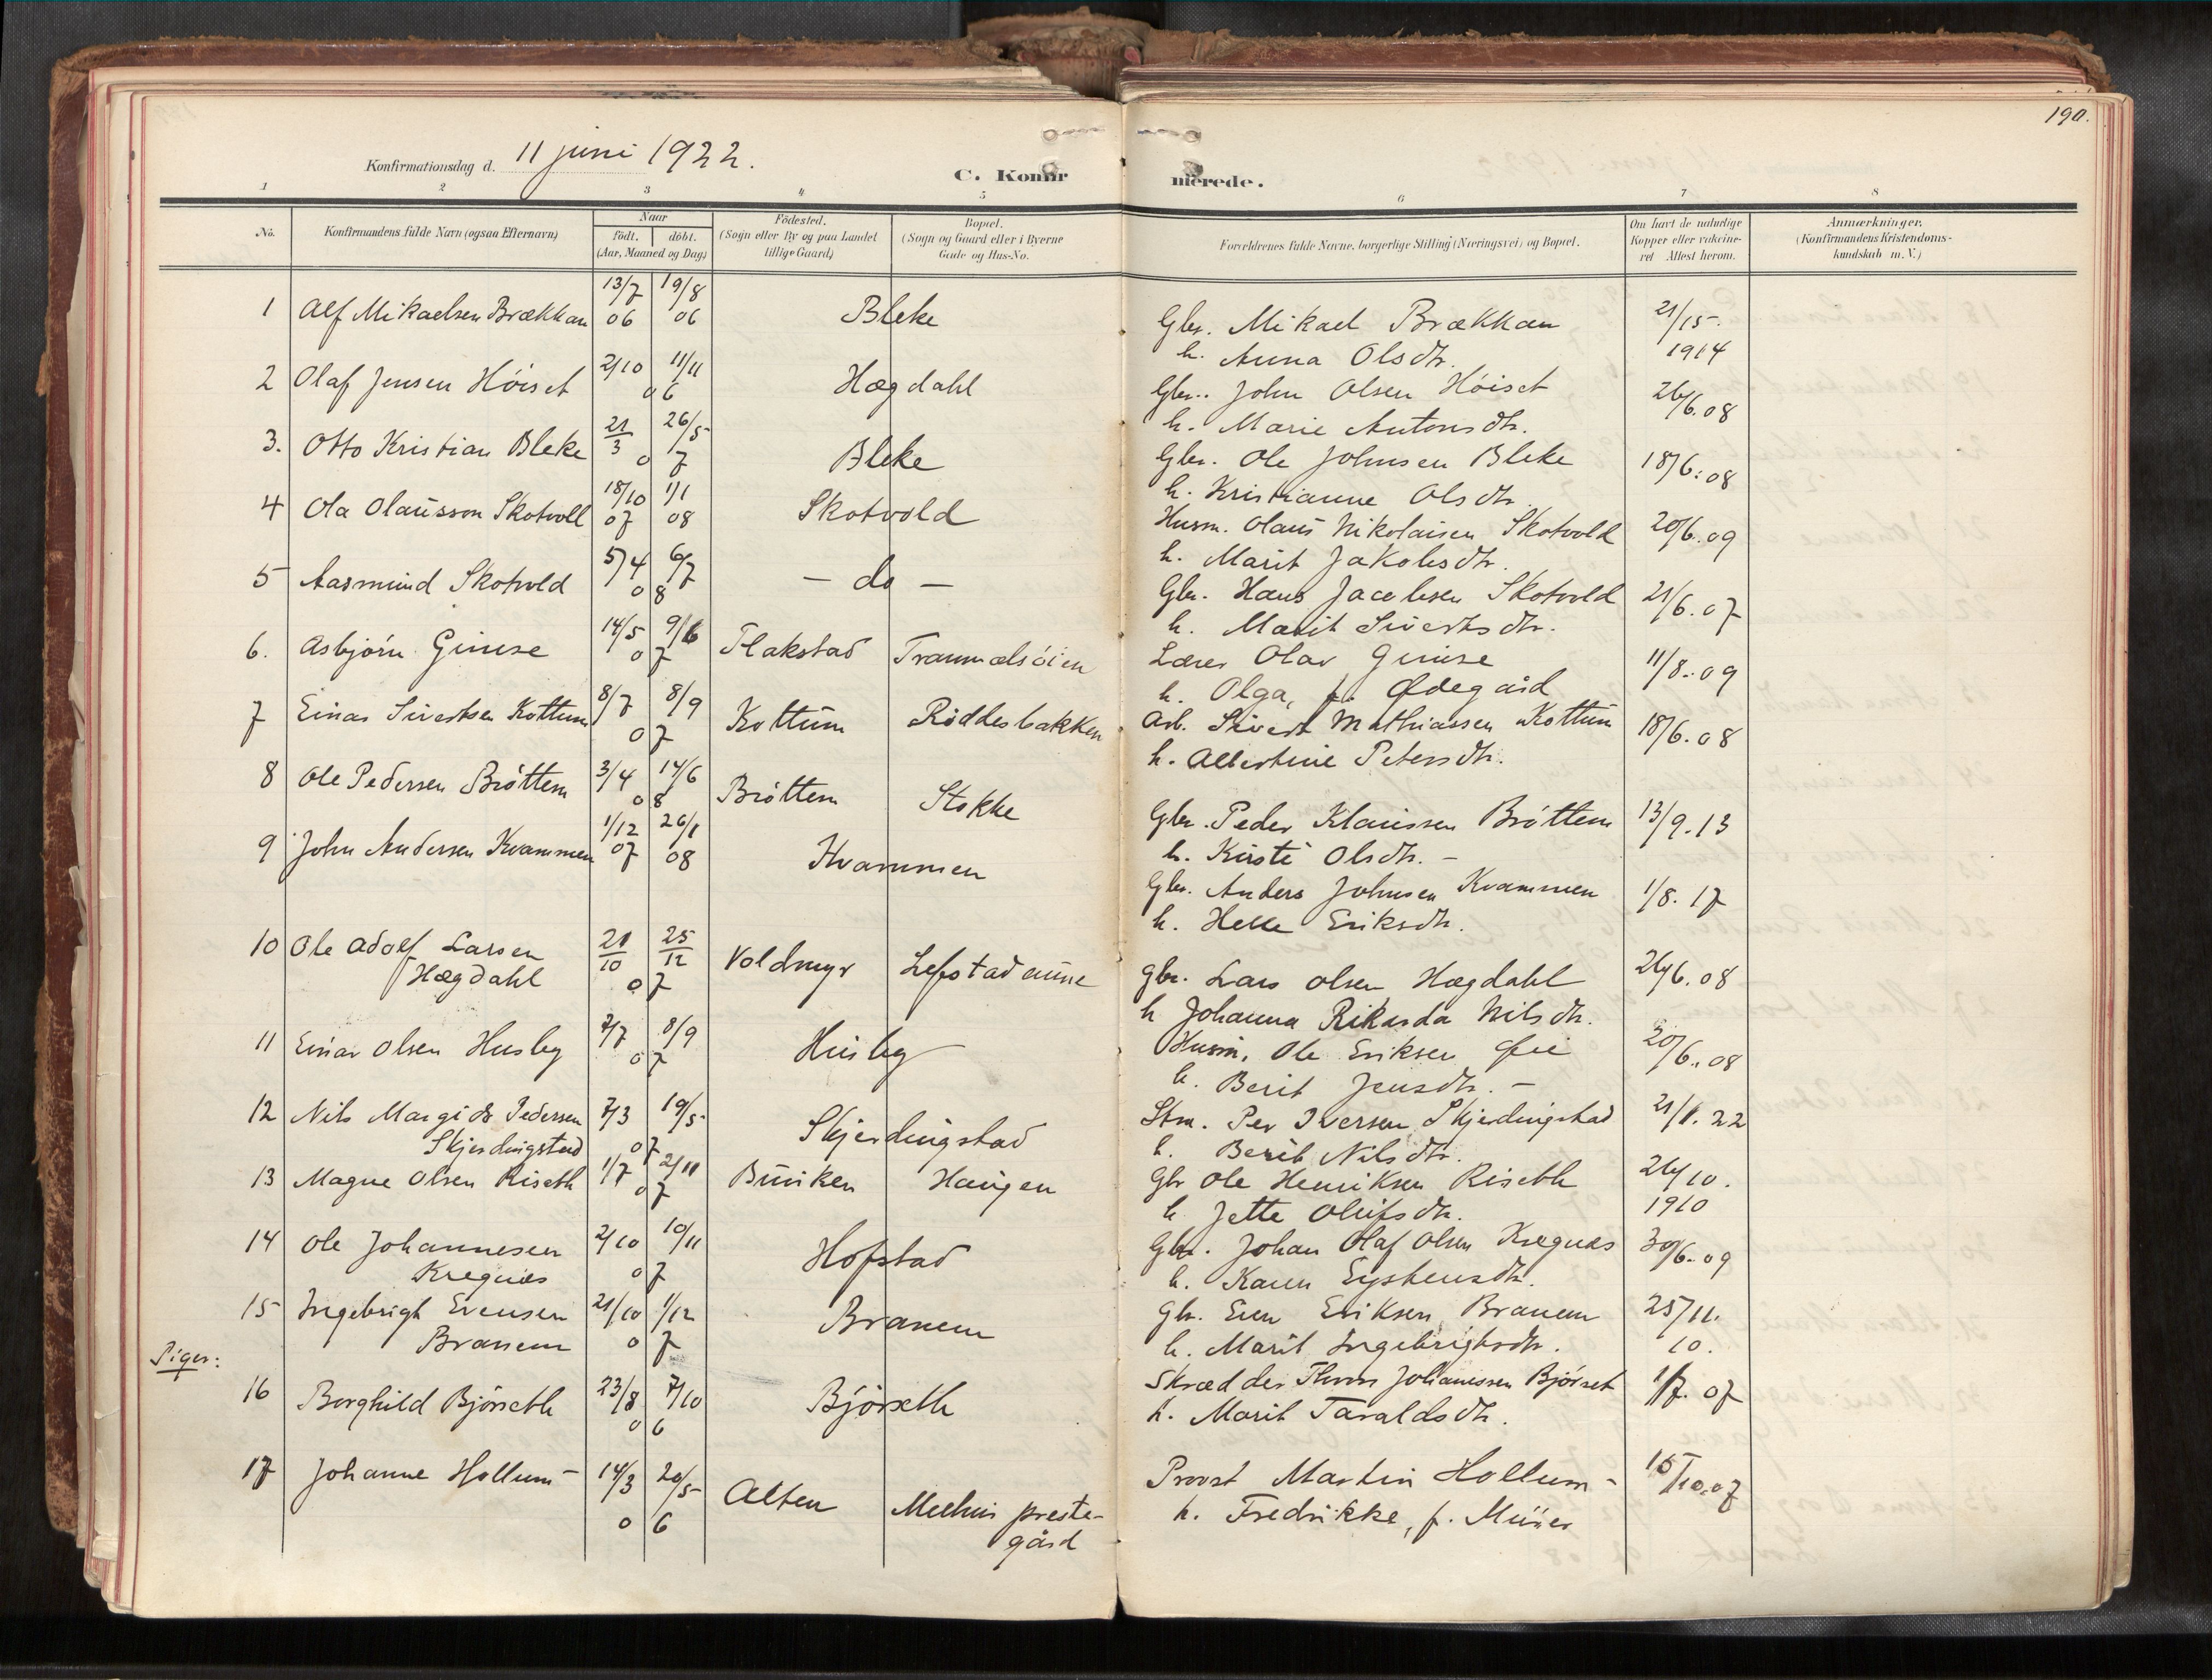 190.
Konfirmationsdag d. 11 juni 1922.
C. Konfir
merede.
1 2 3 4 5 6 7 8
No.
Konfirmandens fulde Navn (ogsaa Efternavn)
Naar
födt. döbt.
(Aar, Maaned og Dag)
Födested.
(Sogn eller By og paa Landet
tillige Gaard)
Bopæl.
(Sogn og Gaard eller i Byerne
Gade og Hus-No.
Forældrenes fulde Navne, borgerlige Stilling (Næringsvei) og Bopæl.
Om havt de naturlige
Kopper eller vakcine-
ret Attest herom.
Anmærkninger.
(Konfirmandens Kristendoms-
kundskab m. V.)
1 Alf Mikaelsen Brækkan 13/7 06 19/8 06 Bleke Gbr. Mikael Brækkan 21/15.
h. Anna Olsdtr. 1914
2 Olaf Jensen Höiset 2/10 11/11 06 Hægdahl Gbr. John Olsen Höiset 26/6.08
h. Marie Antonsdtr.
3. Otto Kristian Bleke 21/3 26/5 07 Bleke Gbr. Ole Johnsen Bleke 18/6.08
h. Kristianne Olsdtr.
4 Ola Olausson Skotvoll 18/10 07 1/1 08 Skotvold Husm. Olaus Nikolaisen Skotvold 20/6.09
h. Marit Jakobsdtr.
5 Aasmund Skotvold 5/4 6/7 08 – do – Gbr. Hans Jacobsen Skotvold 21/6.07
h. Marit Sivertsdtr.
6. Asbjörn Gimse 14/5 9/6 07 Flakstad Trammelsöien Lærer Olav Gimse 11/8.09
h. Olga, f. Ødegård
7 Einar Sivertsen Kottum 8/7 8/9 07 Kottum Röddesbakken Arb. Sivert Mathiassen Kottum 18/6.08
h. Albertine Petersdtr.
8 Ole Pedersen Bröttem 3/4 14/6 08 Bröttem Stokke Gbr. Peder Klaussen Bröttem 13/9.13
h. Kirsti Olsdtr. –
9 John Andersen Kvammen 1/12 07 26/1 08 Kvammen Gbr. Anders Johnsen Kvammen 1/8.17
h. Helle Eriksdtr.
10 Ole Adolf Larsen 21/10 25/12 07 Voldmyr Lefstadaune Gbr. Lars Olsen Hægdahl 26/6.08
Hægdahl h Johanna Rikarda Nilsdtr.
11 Einar Olsen Husby 7/7 8/9 07 Husby Husm. Ole Eriksen Øie 20/6.08
h. Berit Jensdtr. –
12 Nils Margido Pedersen 7/3 19/5 07 Skjerdingstad Stm. Per Iversen Skjerdingstad 21/1.22
Skjerdingstad h. Berit Nilsdtr.
13 Magne Olsen Riseth 1/7 2/11 07 Buviken Haugen Gbr Ole Henriksen Riseth 26/10.
h. Jette Olufsdtr. 1910
14 Ole Johannesen 2/10 10/11 07 Hofstad Gbr. Johan Olaf Olsen Kregnæs 30/6.09
Kregnæs h. Karen Eystensdtr.
15 Ingebrigt Evensen 21/10 1/12 07 Branem Gbr. Even Eriksen Branem 25/11.
Branem h. Marit Ingebrigtsdtr. 10.
Piger:
16 Borghild Bjørseth 23/8 7/10 06 Bjørseth Skrædder Johanssen Bjørset 1/7.07
h. Marit Taraldsdtr.
17 Johanne Hollum 14/3 20/5 06 Alten Melhus preste- Provst Martin Hollum – 16/10.07
gård h. Fredrikke, f.